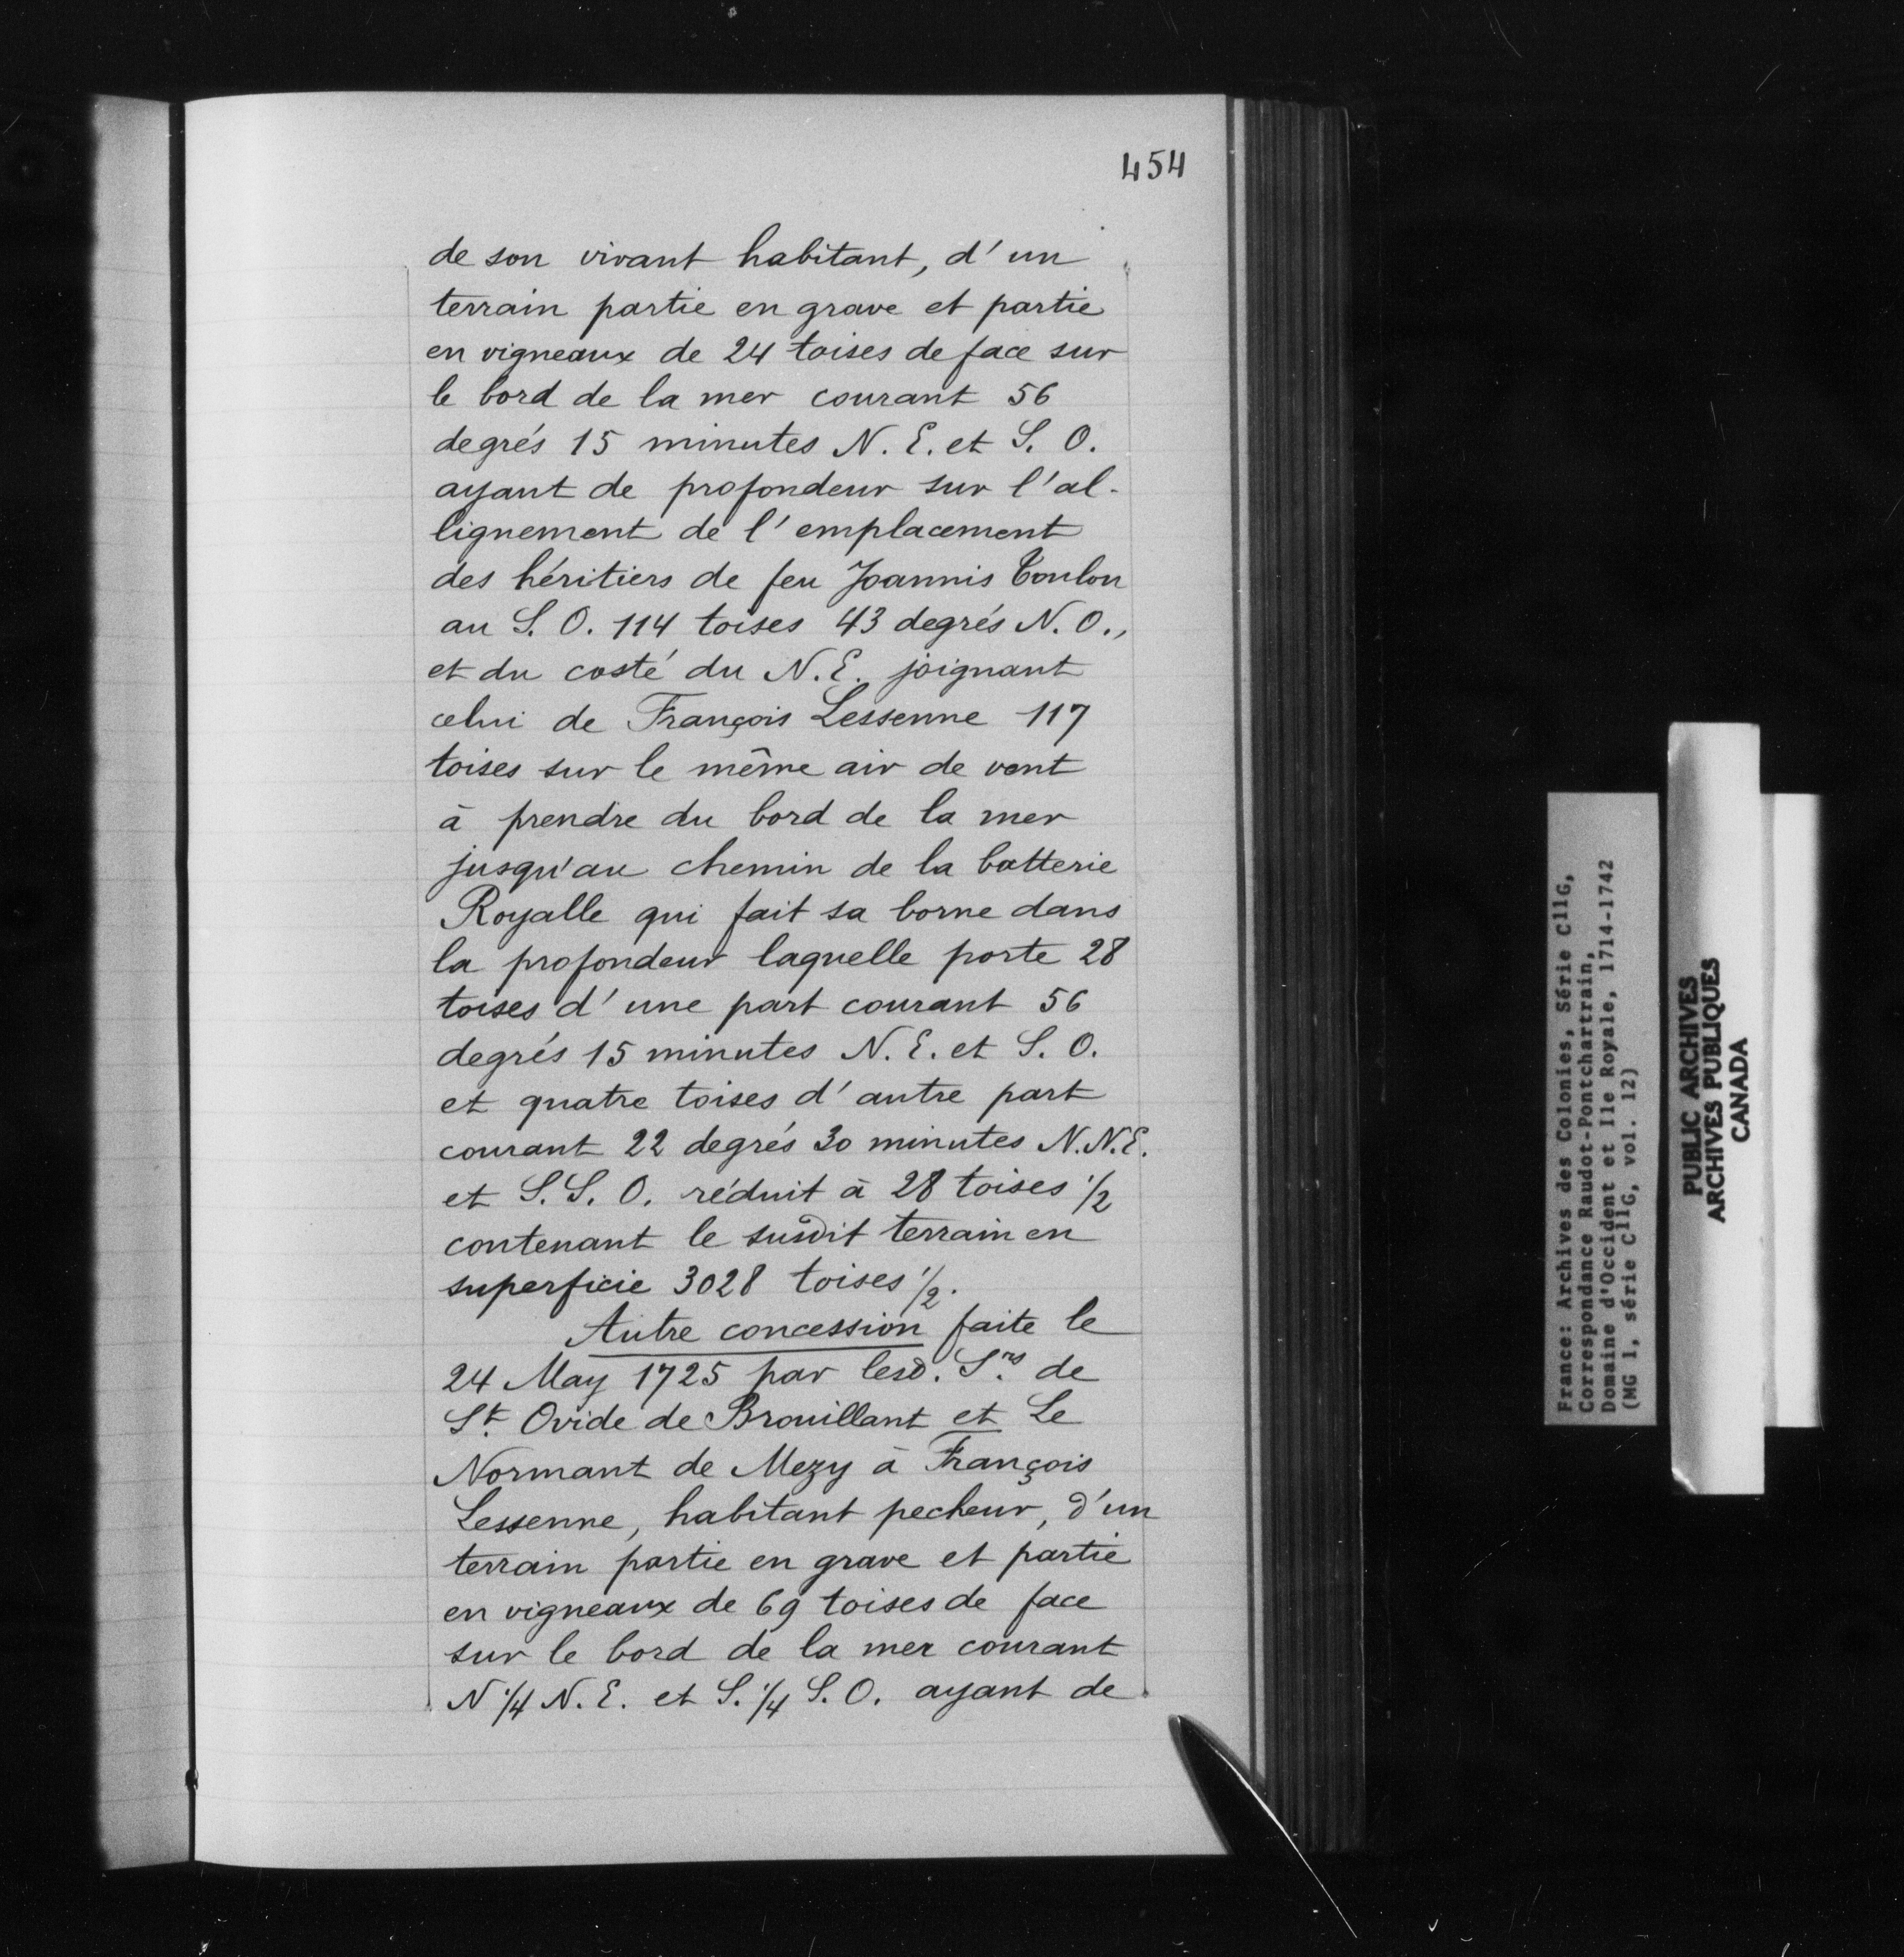 454
de son vivant habitant, d'un
terrain partie en grave et partie
en vigneaux de 24 toises de face sur
le bord de la mer courant 56
degrés 15 minutes N. E. et S. O.
ayant de profondeur sur l'al-
lignement de l'emplacement
des héritiers de feu Joannis Toulon
au S. O. 114 toises 43 degrés N. O.,
et du costé du N. E. joignant
celui de François Lessenne 117
toises sur le même air de vent
à prendre du bord de la mer
jusqu'au chemin de la batterie
Royalle qui fait sa borne dans
la profondeur laquelle porte 28
toises d'une part courant 56
degrés 15 minutes N. E. et S. O.
et quatre toises d'autre part
courant 22 degrés 30 minutes N. N. E.
et S. S. O. réduit à 28 toises 1/2
contenant le susdit terrain en
superficie 3028 toises 1/2.
Autre concession faite le
24 May 1725 par lesd. Srs de
St. Ovide de Brouillant et Le
Normant de Mezy à François
Lessenne, habitant pecheur, d'un
terrain partie en grave et partie
en vigneaux de 69 toises de face
sur le bord de la mer courant
N 1/4 N. E. et S. 1/4 S. O. ayant de
France: Archives des Colonies, Série C11G,
Correspondance Raudot-Pontchartrain,
Domaine d'Occident et Ile Royale, 1714-1742
(MG 1, série C11G, vol. 12)
PUBLIC ARCHIVES
ARCHIVES PUBLIQUES
CANADA